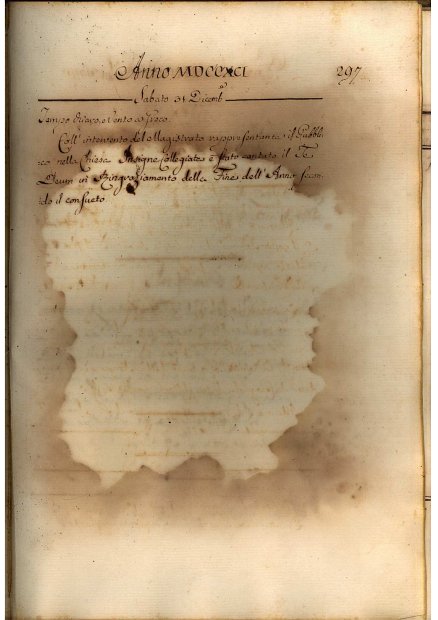 Anno MDCCXCI 297
Sabato 31 Dicemb.
Tempo Chiaro, e Vento
Coll' intervento del Magistrato rappresentante il Pubbli
co nella Chiesa Insigne Collegiata è stato cantato il Te
Deum in Ringraziamento della Fine dell' Anno secon
do il consueto